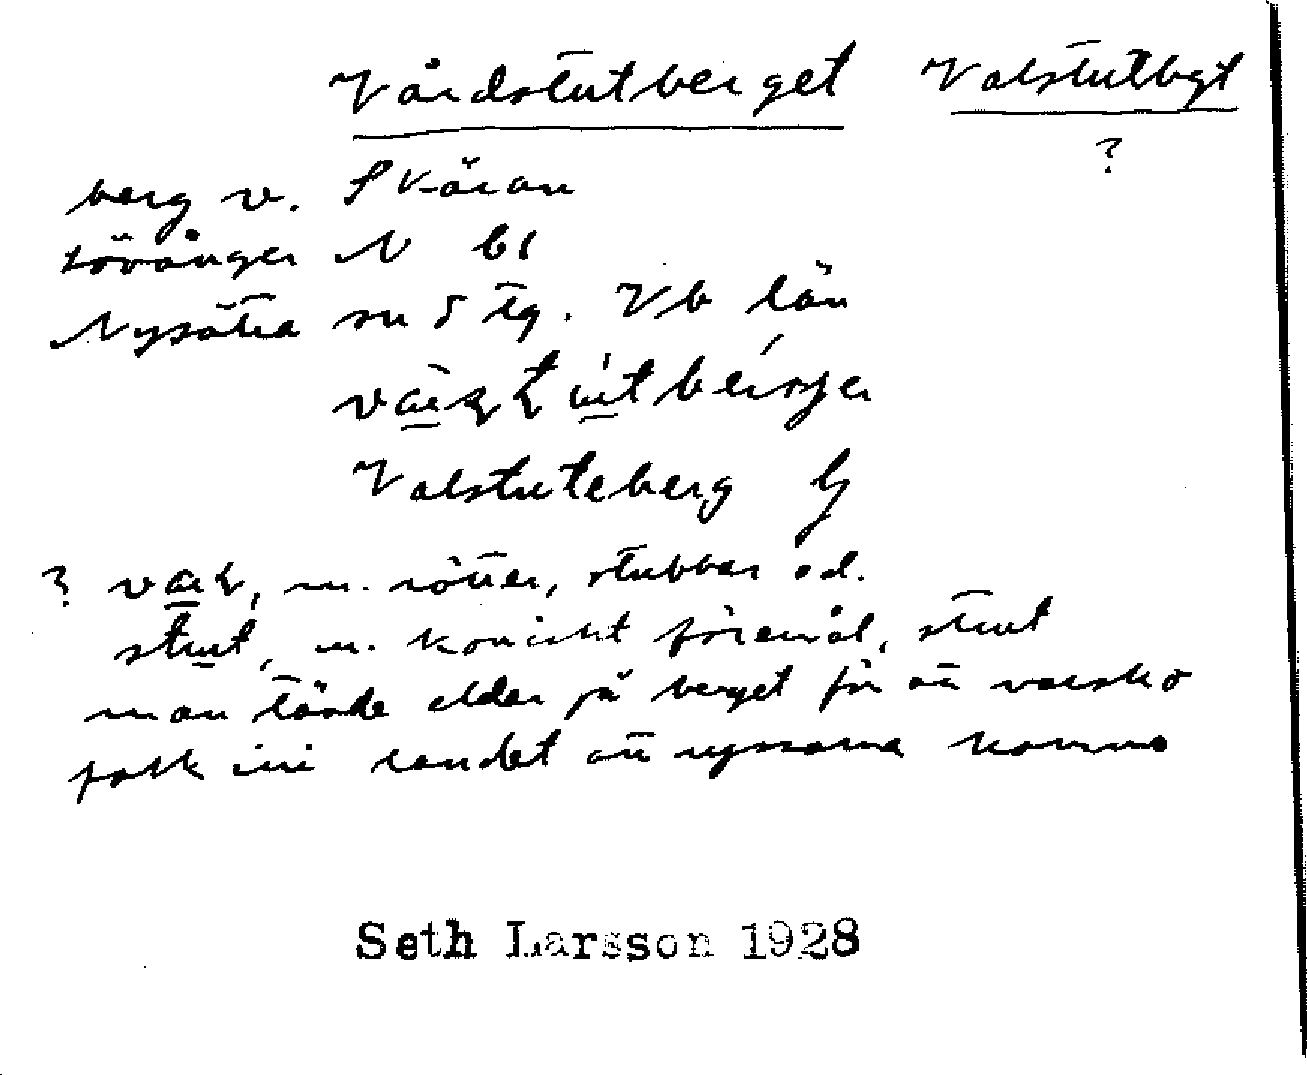 Vårdstutberget Valstutbgt
?
berg v. Skäran
Lövånger N bs
Nysätra sn o tg. Vb län
Valstuteberg G
? m. rötter, stubbar od.
stut, m. koniskt föremål, strut
man tände eldar på berget för att varsko
folk ini landet att ryssarna kommo
Seth Larsson 1928